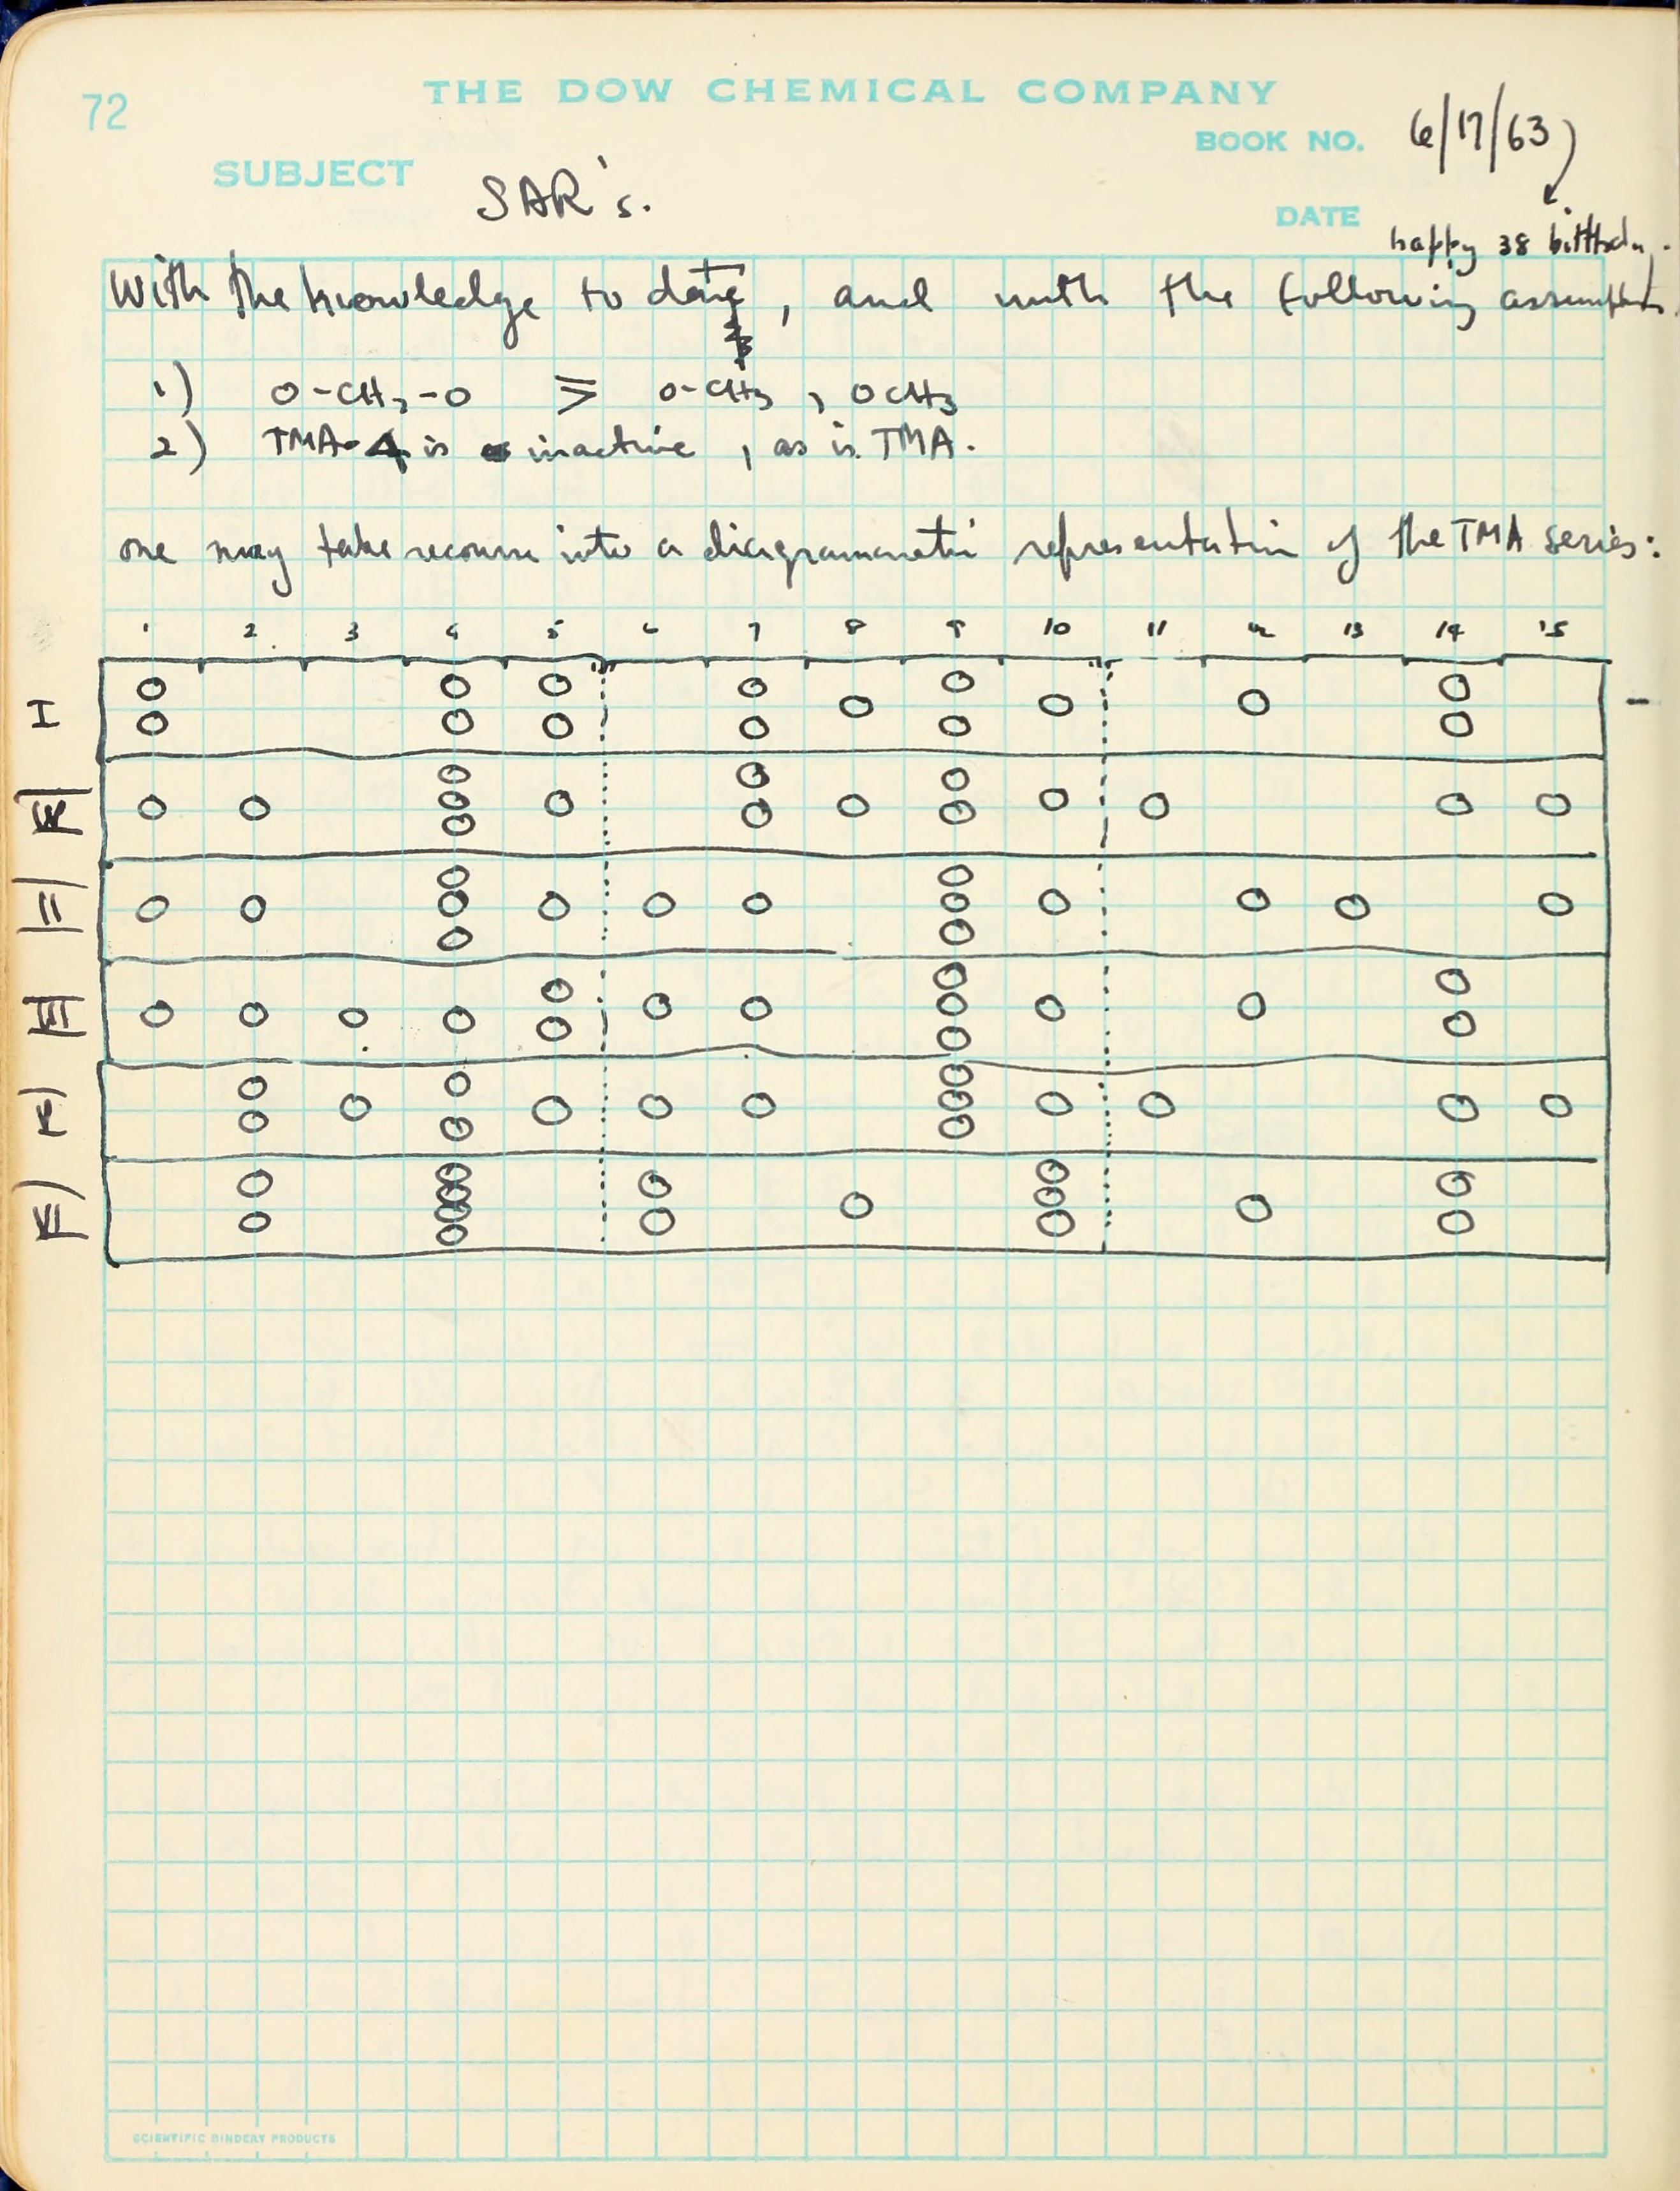 72
THE DOW CHEMICAL COMPANY
BOOK NO. 6/17/63
SUBJECT SAR's.
DATE
happy 38 birthday.
With the knowledge to date, and with the following
1) O-CH2-O ≥ O-CH3, OCH3
2) TMA-4 is inactive, as is TMA.
one may take recourse into a diagrammatic representation of the TMA series:
1 2 3 4 5 6 7 8 9 10 11 12 13 14 15
I
II
III
IV
V
VI
SCIENTIFIC BINDERY PRODUCTS